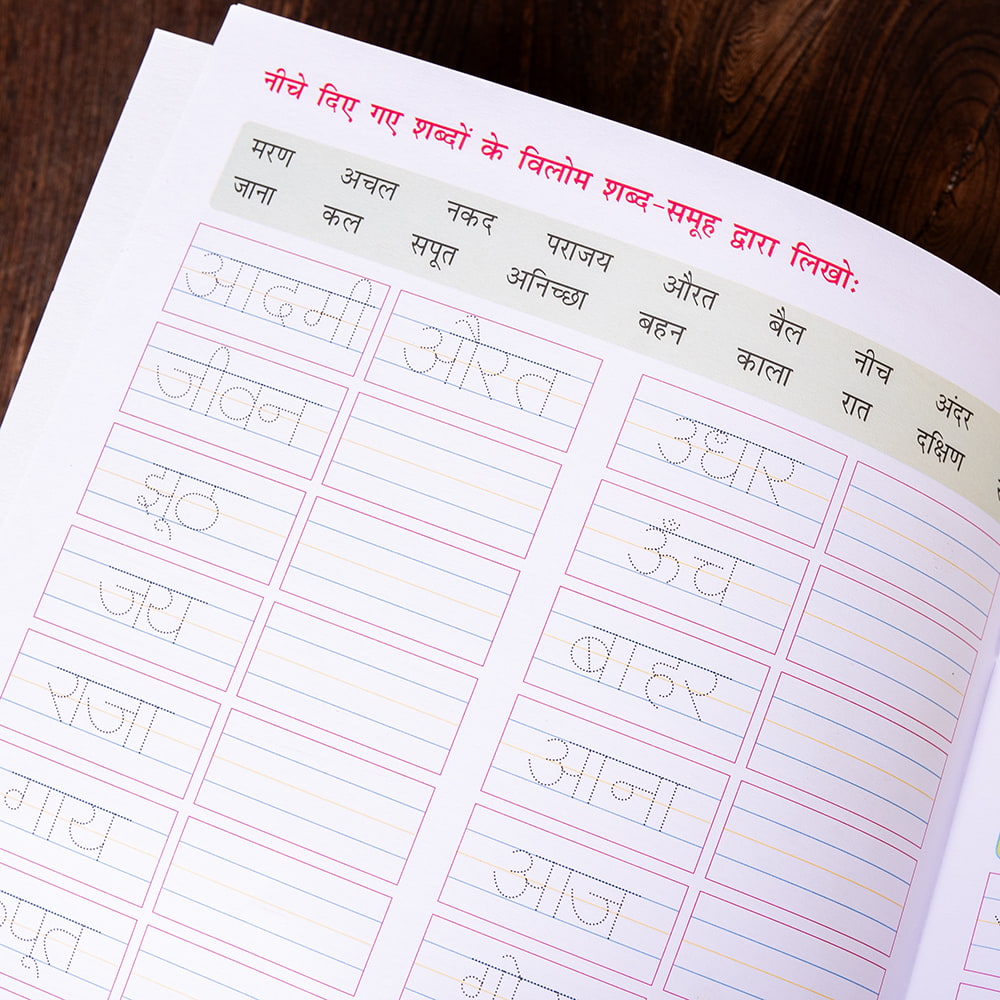 नीचे दिए गए शब्दों के विलोम शब्द-समूह द्वारा लिखो:
मरण अचल नकद पराजय औरत बैल नीच अंदर
जाना कल सपूत अनिच्छा बहन काला रात दक्षिण
आदमी औरत
जीवन
झूठ
जय
राजा
गाय
उधार
ऊँच
बाहर
आना
आज